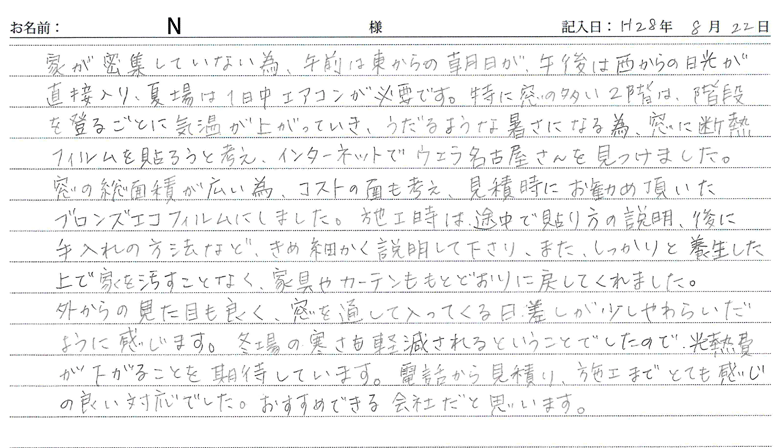 お名前： N 様 記入日：H28年 8月 22日
家が密集していない為、午前は東からの朝日が、午後は西からの日光が
直接入り、夏場は1日中エアコンが必要です。特に窓の多い2階は、階段
を登るごとに気温が上がっていき、うだるような暑さになる為、窓に断熱
フィルムを貼ろうと考え、インターネットでウェラ名古屋さんを見つけました。
窓の総面積が広い為、コストの面も考え、見積時にお勧め頂いた
ブロンズエコフィルムにしました。施工時は、途中で貼り方の説明、後に
手入れの方法など、きめ細かく説明して下さり、また、しっかりと養生した
上で家を汚すことなく、家具やカーテンももとどおりに戻してくれました。
外からの見た目も良く、窓を通して入ってくる日差しが少しやわらいだ
ように感じます。冬場の寒さも軽減されるということでしたので、光熱費
が下がることを期待しています。電話から見積り、施工までとても感じ
の良い対応でした。おすすめできる会社だと思います。